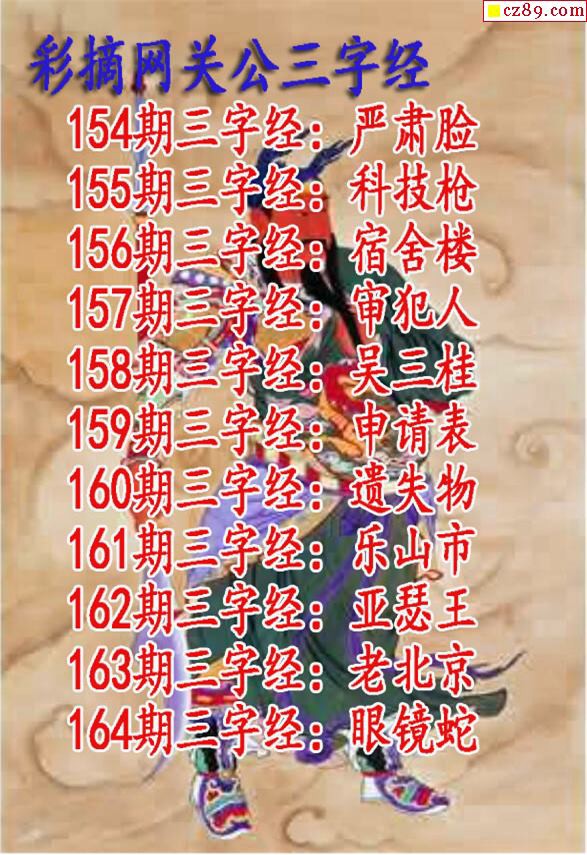 cz89.com
彩摘网关公三字经
154期三字经：严肃脸
155期三字经：科技枪
156期三字经：宿舍楼
157期三字经：审犯人
158期三字经：吴三桂
159期三字经：申请表
160期三字经：遗失物
161期三字经：乐山市
162期三字经：亚瑟王
163期三字经：老北京
164期三字经：眼镜蛇